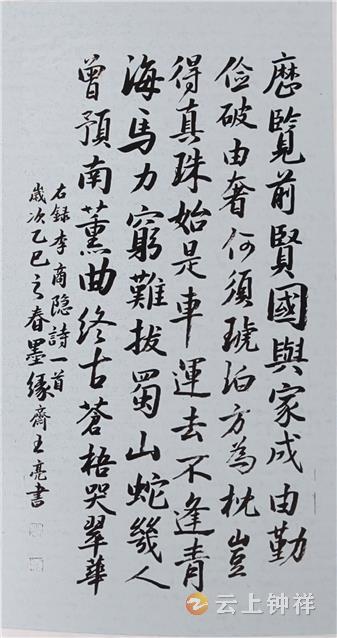 歴覽前賢國與家成由勤
俭破由奢何須琥珀方為枕豈
得真珠始是車運去不逢青
海馬力窮難拔蜀山蛇幾人
曾預南薰曲終古蒼梧哭翠華
右録李商隐詩一首
歲次乙巳之春墨缘齋王亮書
云上钟祥